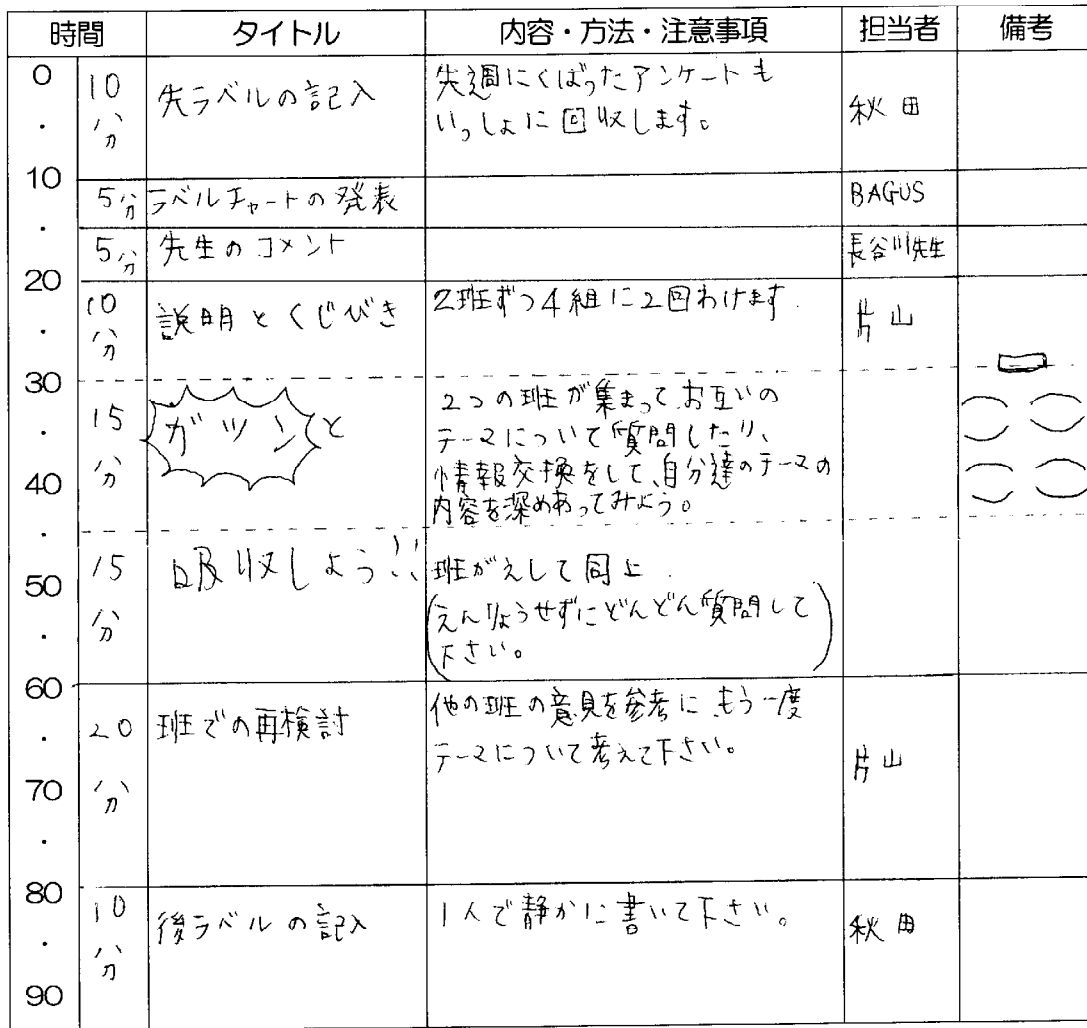 時間 タイトル 内容・方法・注意事項 担当者 備考
0
10分
先ラベルの記入
先週にくばったアンケートも
いっしょに回収します。
秋田
・
10
5分 ラベルチャートの発表 BAGUS
・
5分 先生のコメント 長谷川先生
20
10分
説明とくじびき
2班ずつ4組に2回わけます
片山
・
30
15分
ガツンと
2つの班が集まって、お互いの
テーマについて質問したり、
情報交換をして、自分達のテーマの
内容を深めあってみよう。
・
40
・
15分
吸収しよう!!
班がえして同上
(えんりょうせずにどんどん質問して
下さい。)
50
・
60
20分
班での再検討
他の班の意見を参考に、もう一度
テーマについて考えて下さい。
片山
・
70
・
80
10分
後ラベルの記入
1人で静かに書いて下さい。
秋田
・
90